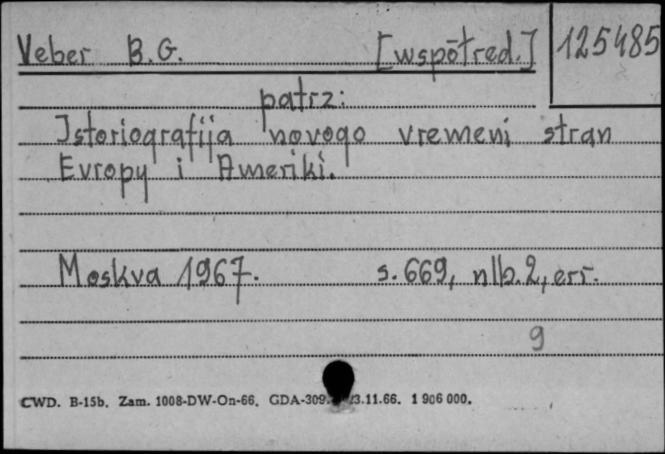 Veber B.G. [współred.] 125485
patrz:
Istoriografija novogo vremeni stran
Evropy i Ameriki.
Moskva 1967. s. 669, nlb. 2, err.
9
CWD. B-15b. Zam. 1008-DW-On-66. GDA-309. 3.11.66. 1 906 000.